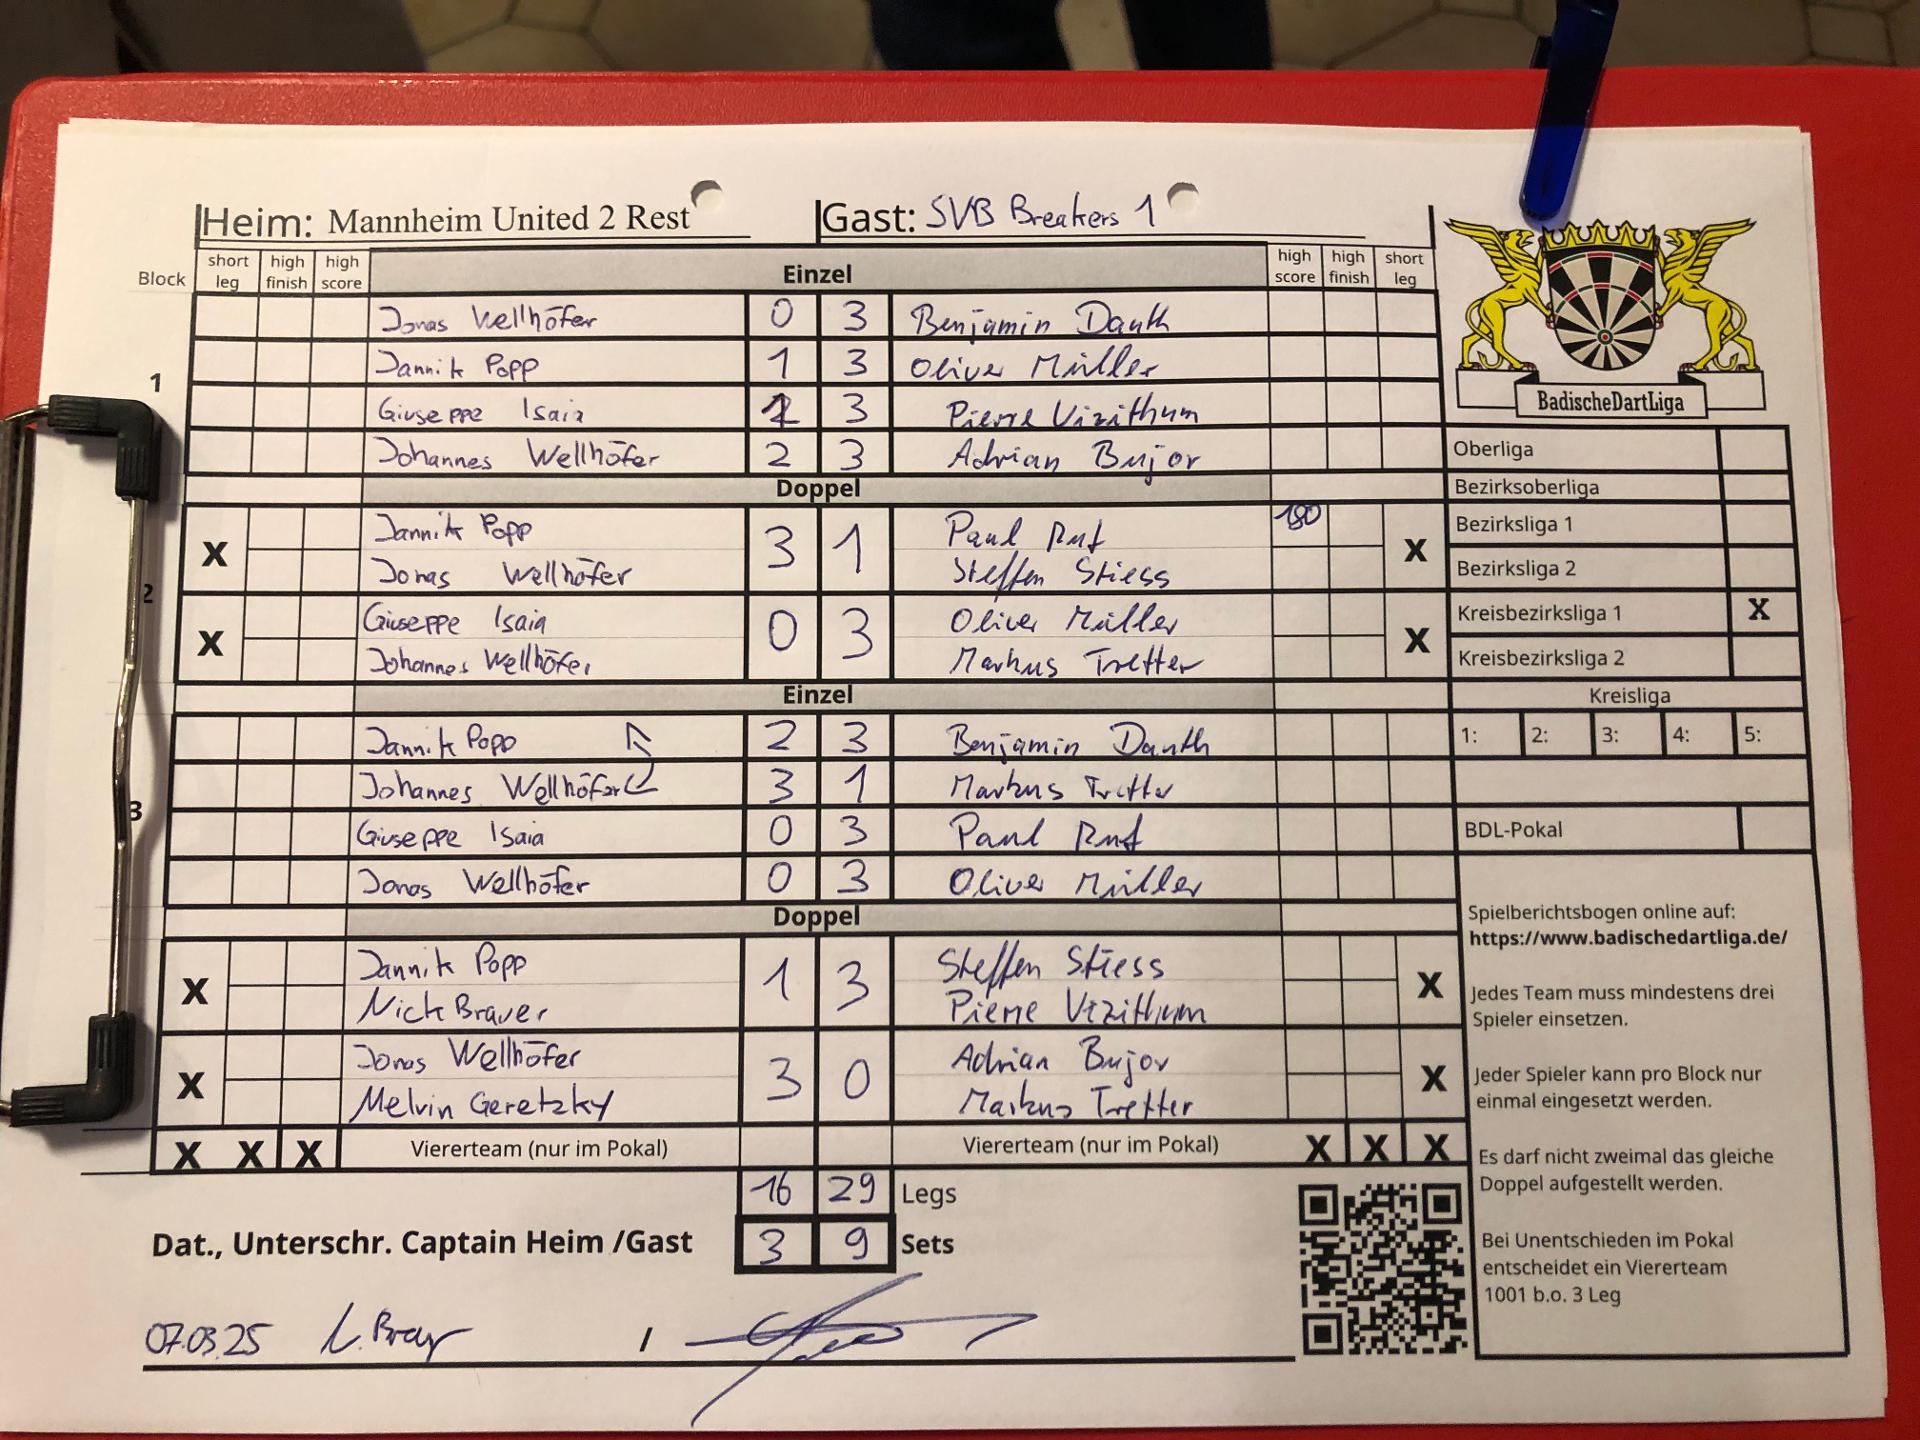 Heim: Mannheim United 2 Rest Gast: SVB Breakers 1
Block short leg high finish high score Einzel high score high finish short leg
Jonas Wellhöfer 0 3 Benjamin Danth
Jannik Popp 1 3 Oliver Müller
1
Giuseppe Isaia 1 3 Pierre Vizithum
Johannes Wellhöfer 2 3 Adrian Bujor
Doppel
Jannik Popp 3 1 Paul Ruf 180
X Jonas Wellhöfer Steffen Stiess X
2
Giuseppe Isaia 0 3 Oliver Müller
X Johannes Wellhöfer Markus Tretter X
Einzel
Jannik Popp 2 3 Benjamin Danth
Johannes Wellhöfer 3 1 Markus Tretter
3
Giuseppe Isaia 0 3 Paul Ruf
Jonas Wellhöfer 0 3 Oliver Müller
Doppel
Jannik Popp 1 3 Steffen Stiess
X Nick Brauer Pierre Vizithum X
Jonas Wellhöfer 3 0 Adrian Bujor
X Melvin Geretzky Markus Tretter X
X X X Viererteam (nur im Pokal) Viererteam (nur im Pokal) X X X
16 29 Legs
Dat., Unterschr. Captain Heim /Gast 3 9 Sets
07.03.25 /
BadischeDartLiga
Oberliga
Bezirksoberliga
Bezirksliga 1
Bezirksliga 2
Kreisbezirksliga 1 X
Kreisbezirksliga 2
Kreisliga
1: 2: 3: 4: 5:
BDL-Pokal
Spielberichtsbogen online auf:
https://www.badischedartliga.de/
Jedes Team muss mindestens drei
Spieler einsetzen.
Jeder Spieler kann pro Block nur
einmal eingesetzt werden.
Es darf nicht zweimal das gleiche
Doppel aufgestellt werden.
Bei Unentschieden im Pokal
entscheidet ein Viererteam
1001 b.o. 3 Leg